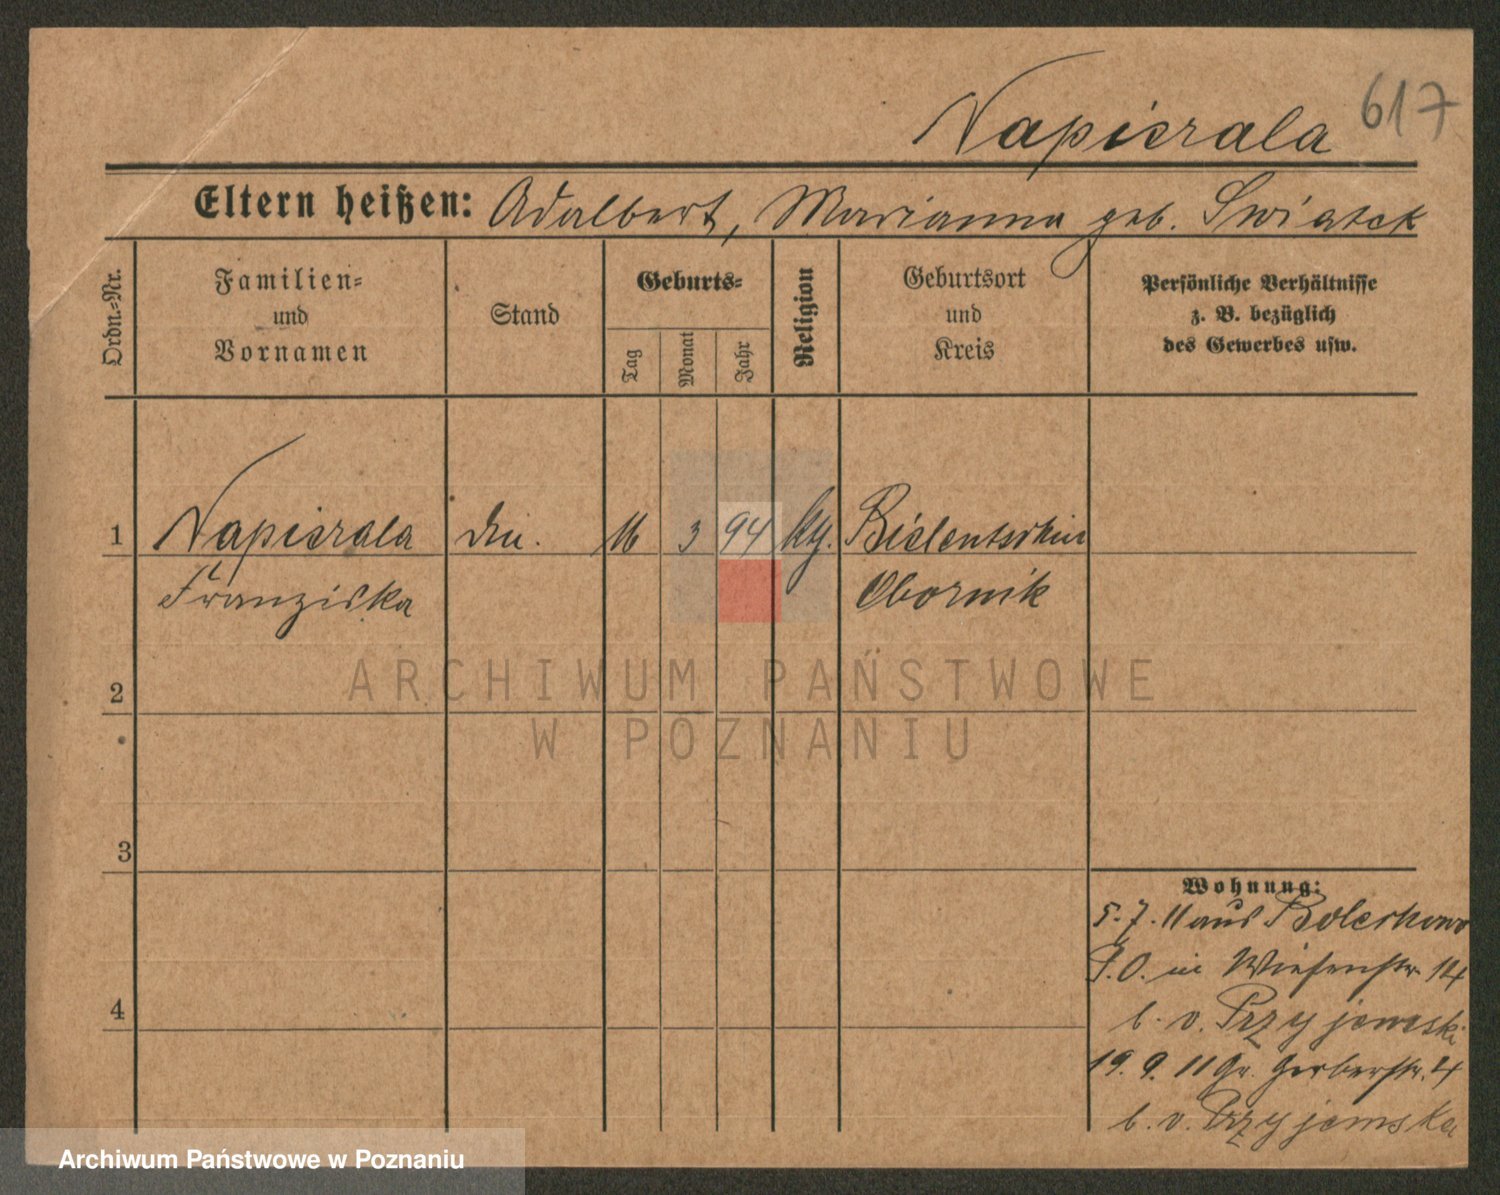 Napierala 617
Eltern heißen: Adalbert, Marianna geb. Swiatek
Ordn.-Nr.
Familien-
und
Vornamen
Stand
Geburts-
Tag
Monat
Jahr
Religion
Geburtsort
und
Kreis
Persönliche Verhältnisse
z. B. bezüglich
des Gewerbes usw.
1 Napierala 16 3 94 kth.
Franziska Obornik
2
3
4
Wohnung:
5. 7. 11 aus
P.O. in Wiesenstr. 14
b. v. Przyjemski
19. 9. 11 Gr. Gerberstr. 4
b. v. Przyjemska
ARCHIWUM PAŃSTWOWE
W POZNANIU
Archiwum Państwowe w Poznaniu